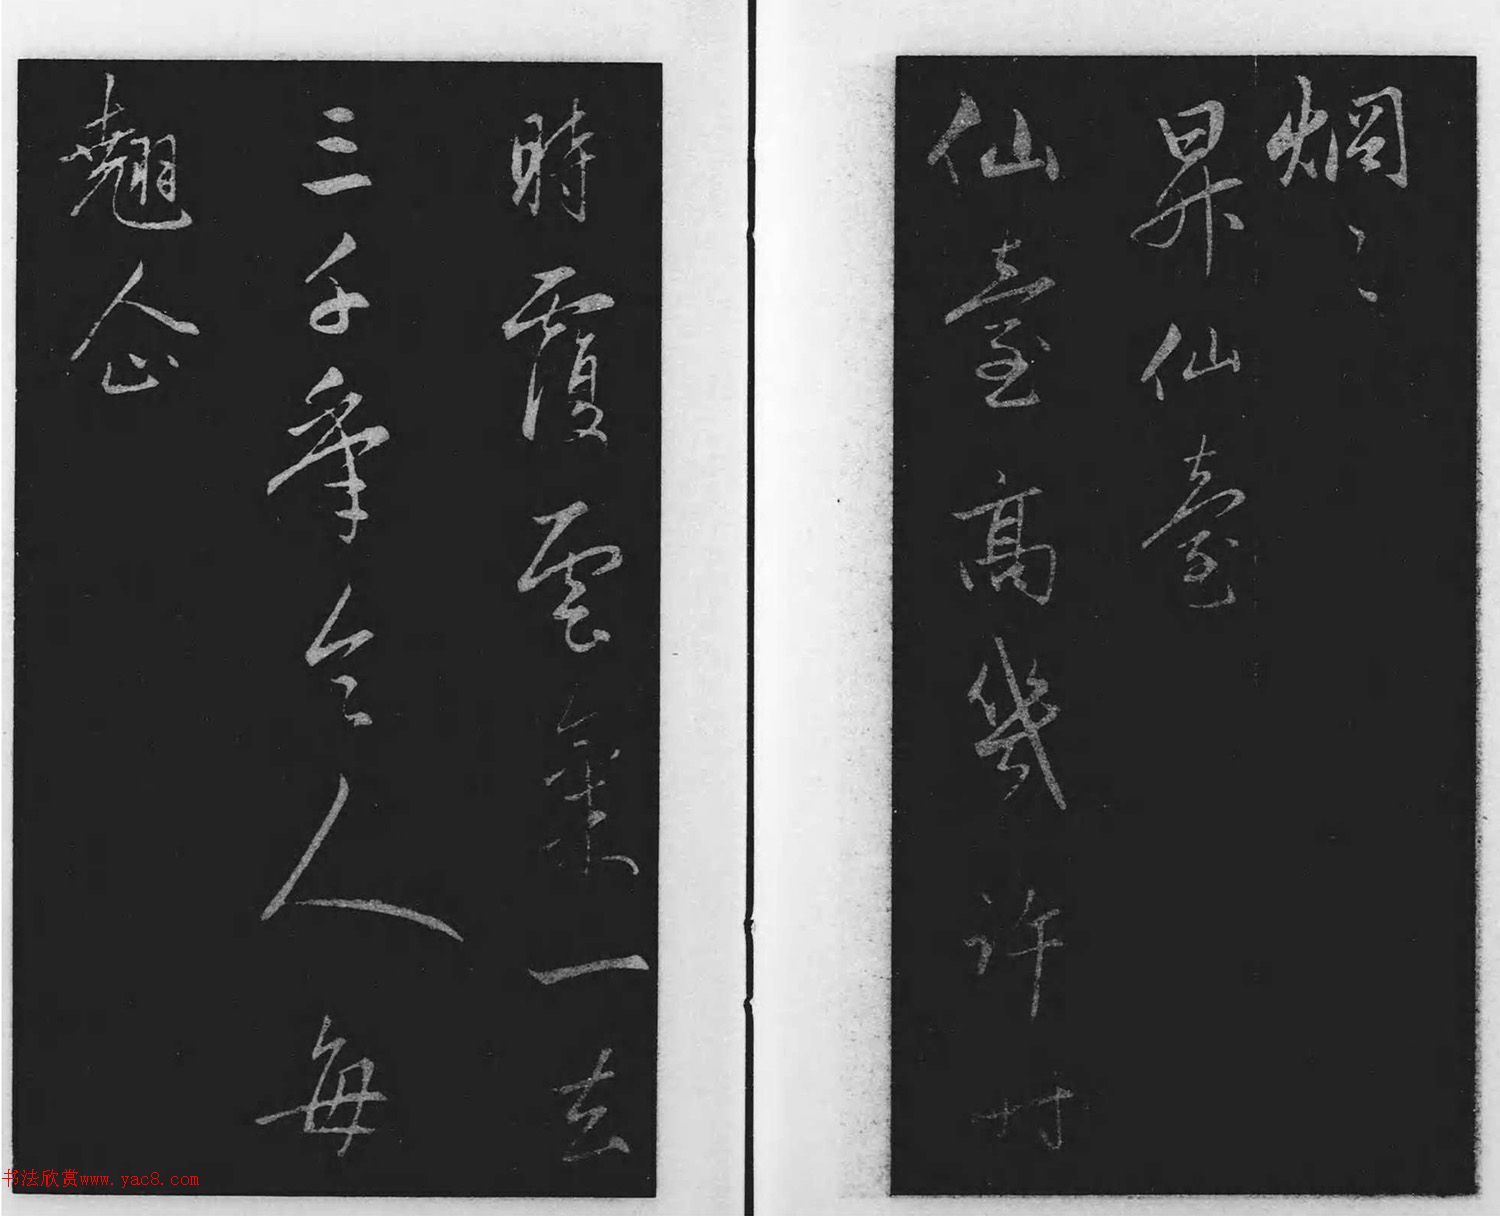 烱〻
昇仙臺
仙臺高幾許時
時覆雲氣一去
三千年令人每
翹企
书法欣赏www.yac8.com